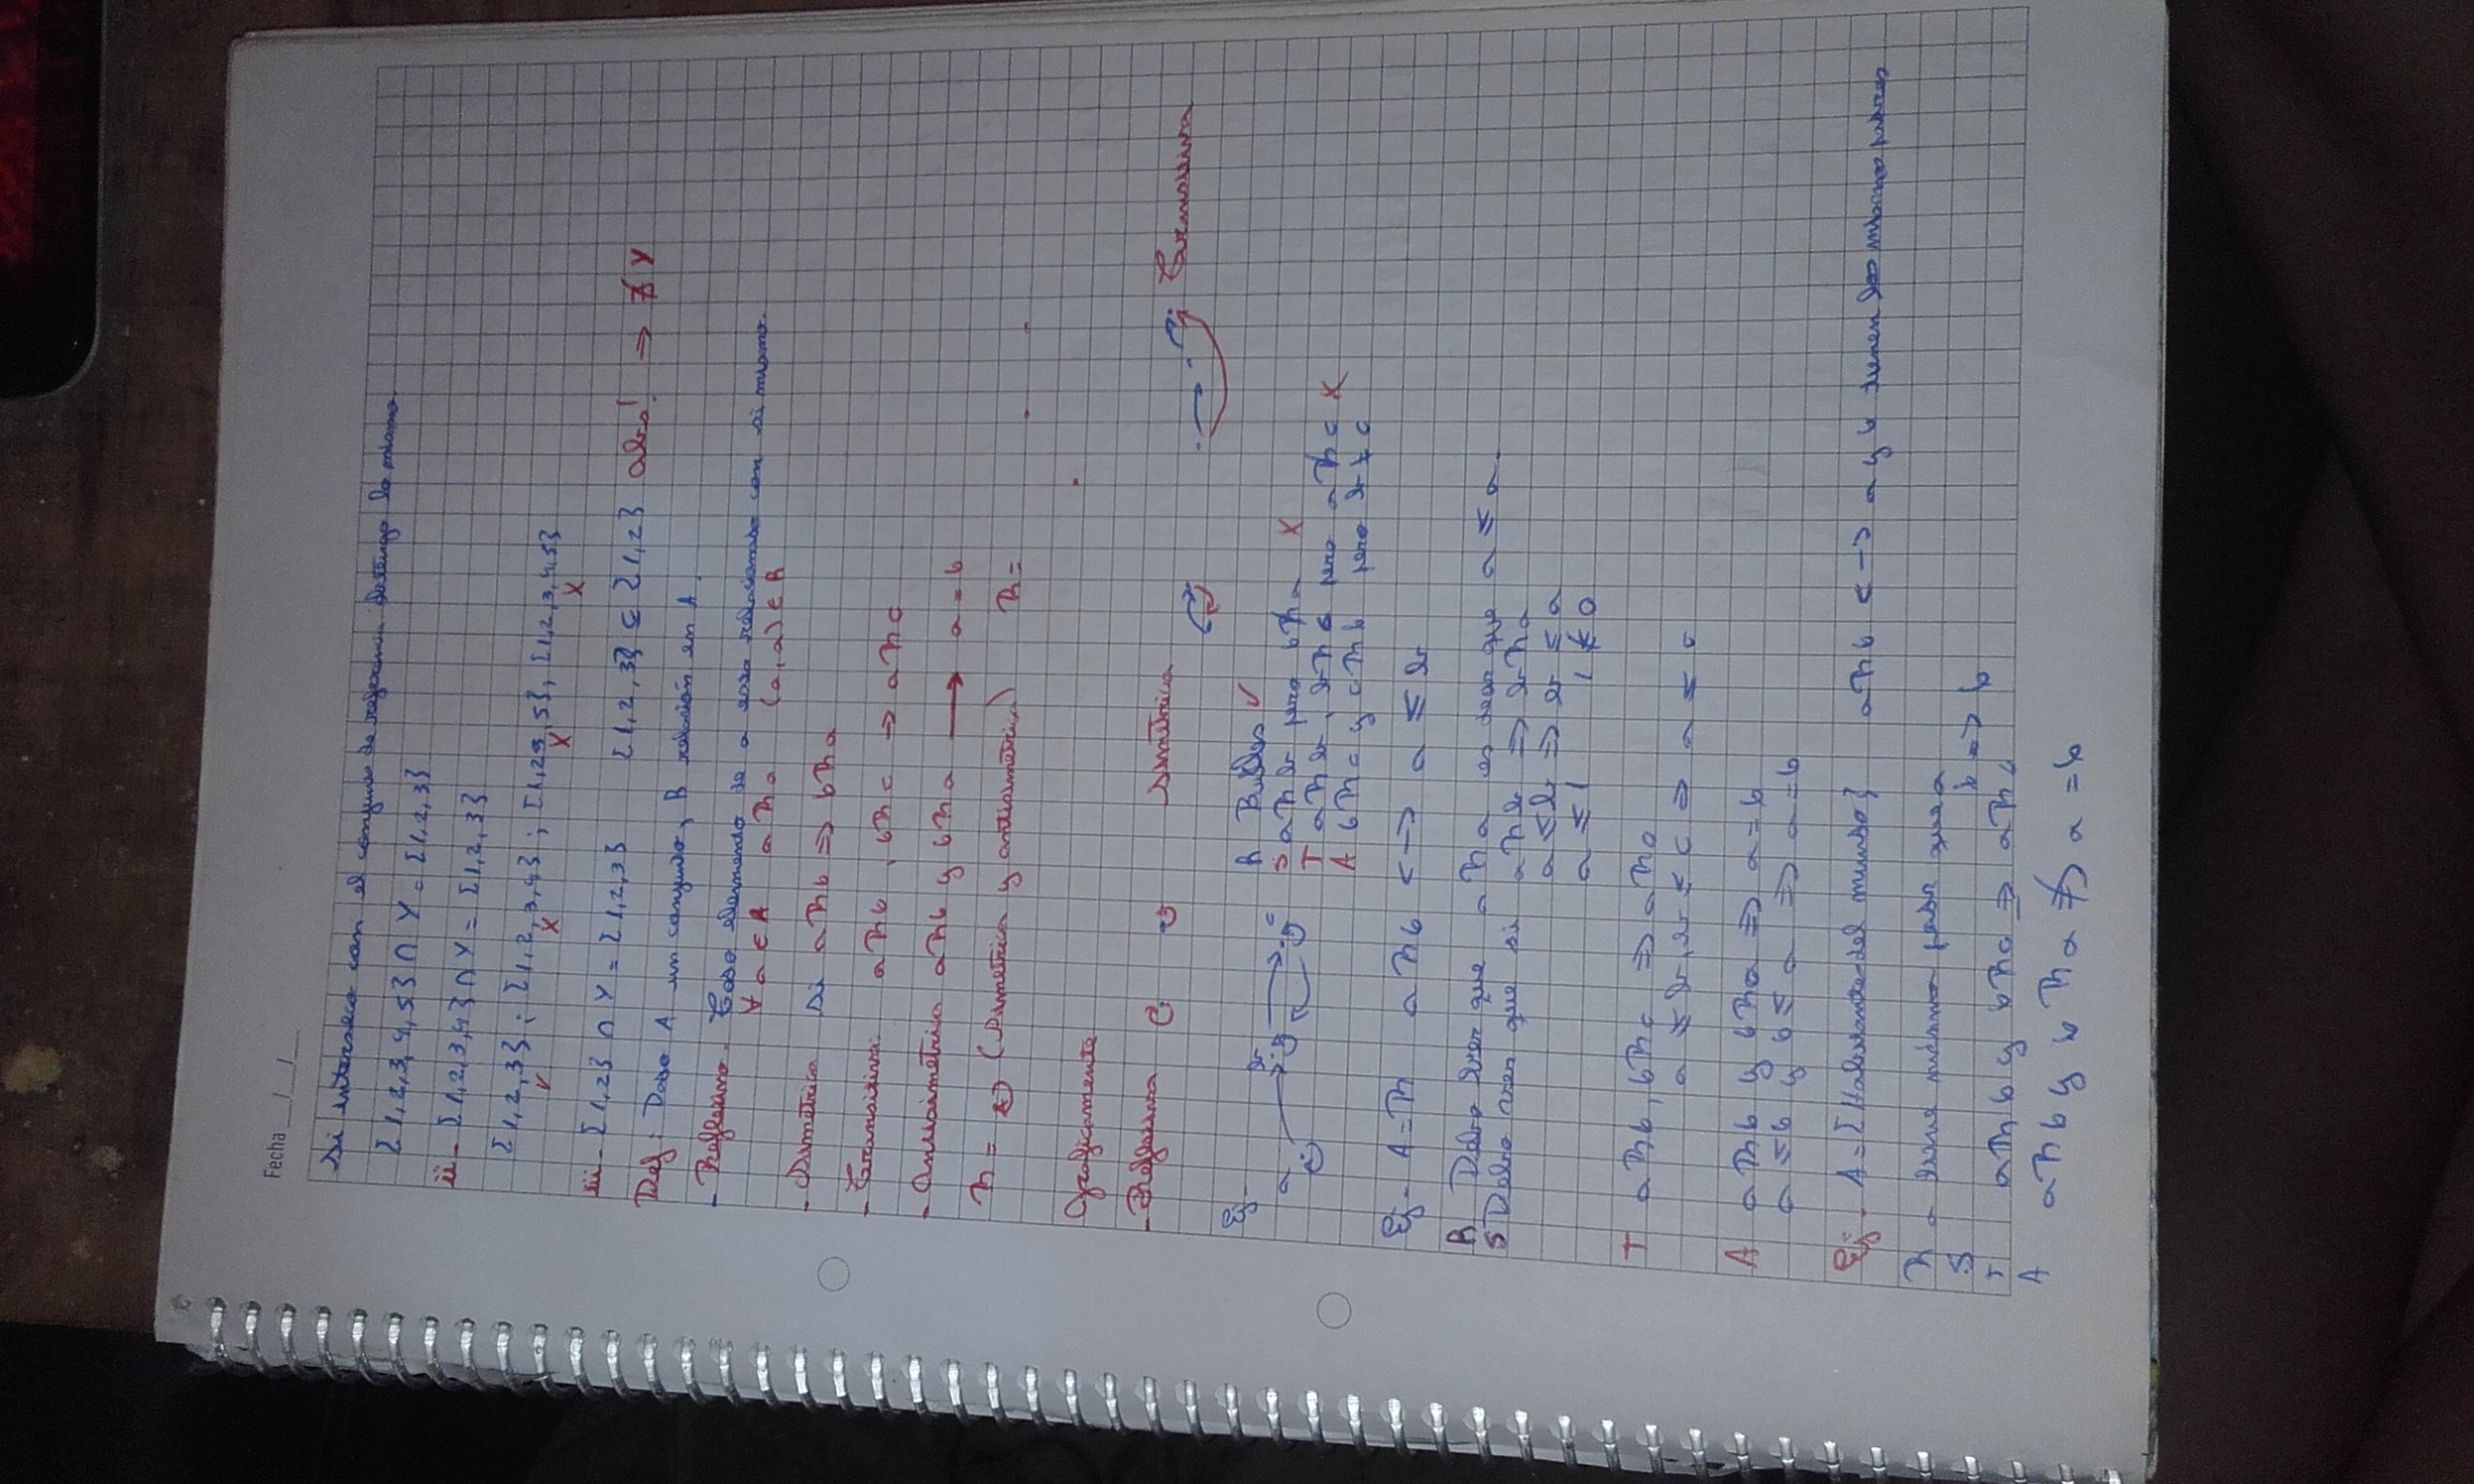 Fecha __/__/__
Si interseco con el conjunto de referencia obtengo lo mismo.
{1,2,3,4,5} ∩ Y = {1,2,3}
ii- {1,2,3,4} ∩ Y = {1,2,3}
{1,2,3} ; {1,2,3,4} ; {1,2,3,5}, {1,2,3,4,5}
✓ X X X
iii- {1,2} ∩ Y = {1,2,3} {1,2,3} ⊆ {1,2} abs! ⇒ ∄ Y
Def: Dado A un conjunto, R relación en A.
- Reflexiva. Todo elemento de a esta relacionado con si mismo.
∀ a ∈ A a R a (a,a) ∈ R
- Simetrica si a R b ⇒ b R a
- Transitiva: a R b, b R c → a R c
- Antisimetrica a R b y b R a → a = b
R = (Simetrica y antisimetrica) R =
Graficamente
- Reflexiva Simetrica Transitiva
Ej- a b c
R Bucles ✓
S a R b pero b R̸ a X
T a R b, b R c pero a R̸ c X
A b R c y c R b pero b ≠ c
Ej- A = R a R b <-> a ≤ b
R Debo ver que a R a es decir que a ≤ a.
S Debo ver que si a R b ⇒ b R a
a ≤ b ⇒ b ≤ a
a ≤ 1 1 ≰ 0
T a R b, b R c ⇒ a R c
a ≤ b, b ≤ c ⇒ a ≤ c
A a R b y b R a ⇒ a = b
a ≤ b y b ≤ a ⇒ a = b
Ej- A = {Habitantes del mundo} a R b <-> a y b tienen los mismos padres
R a tiene mismo padre que a
S b => b
T a R b y b R c ⇒ a R c
A a R b y b R a ⇏ a = b